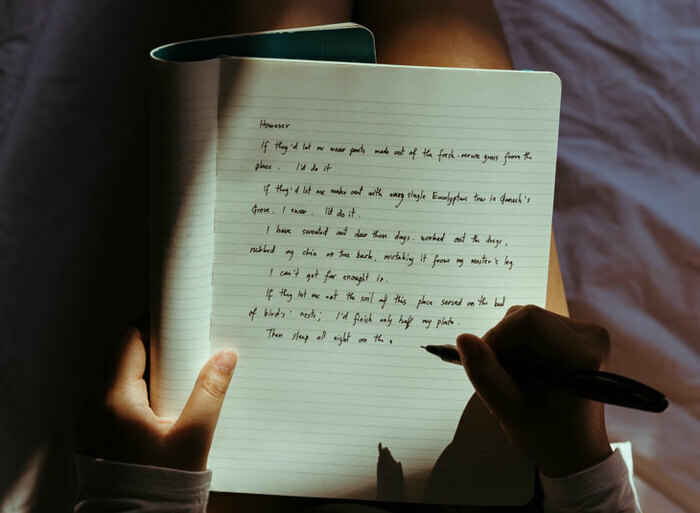 However
If they'd let me wear pants made out of the fresh-mown grass from the
place. I'd do it
If they'd let me make out with every single Eucalyptus tree in Ganesh's
Grove, I swear. I'd do it.
I have sweated out deer these days. worked out the dregs,
rubbed my chin on tree bark, mistaking it from my master's leg
I can't get far enought in.
If they let me eat the soil of this place served on the bed
of bird's nests; I'd finish only half my plate.
Then sleep all night on the